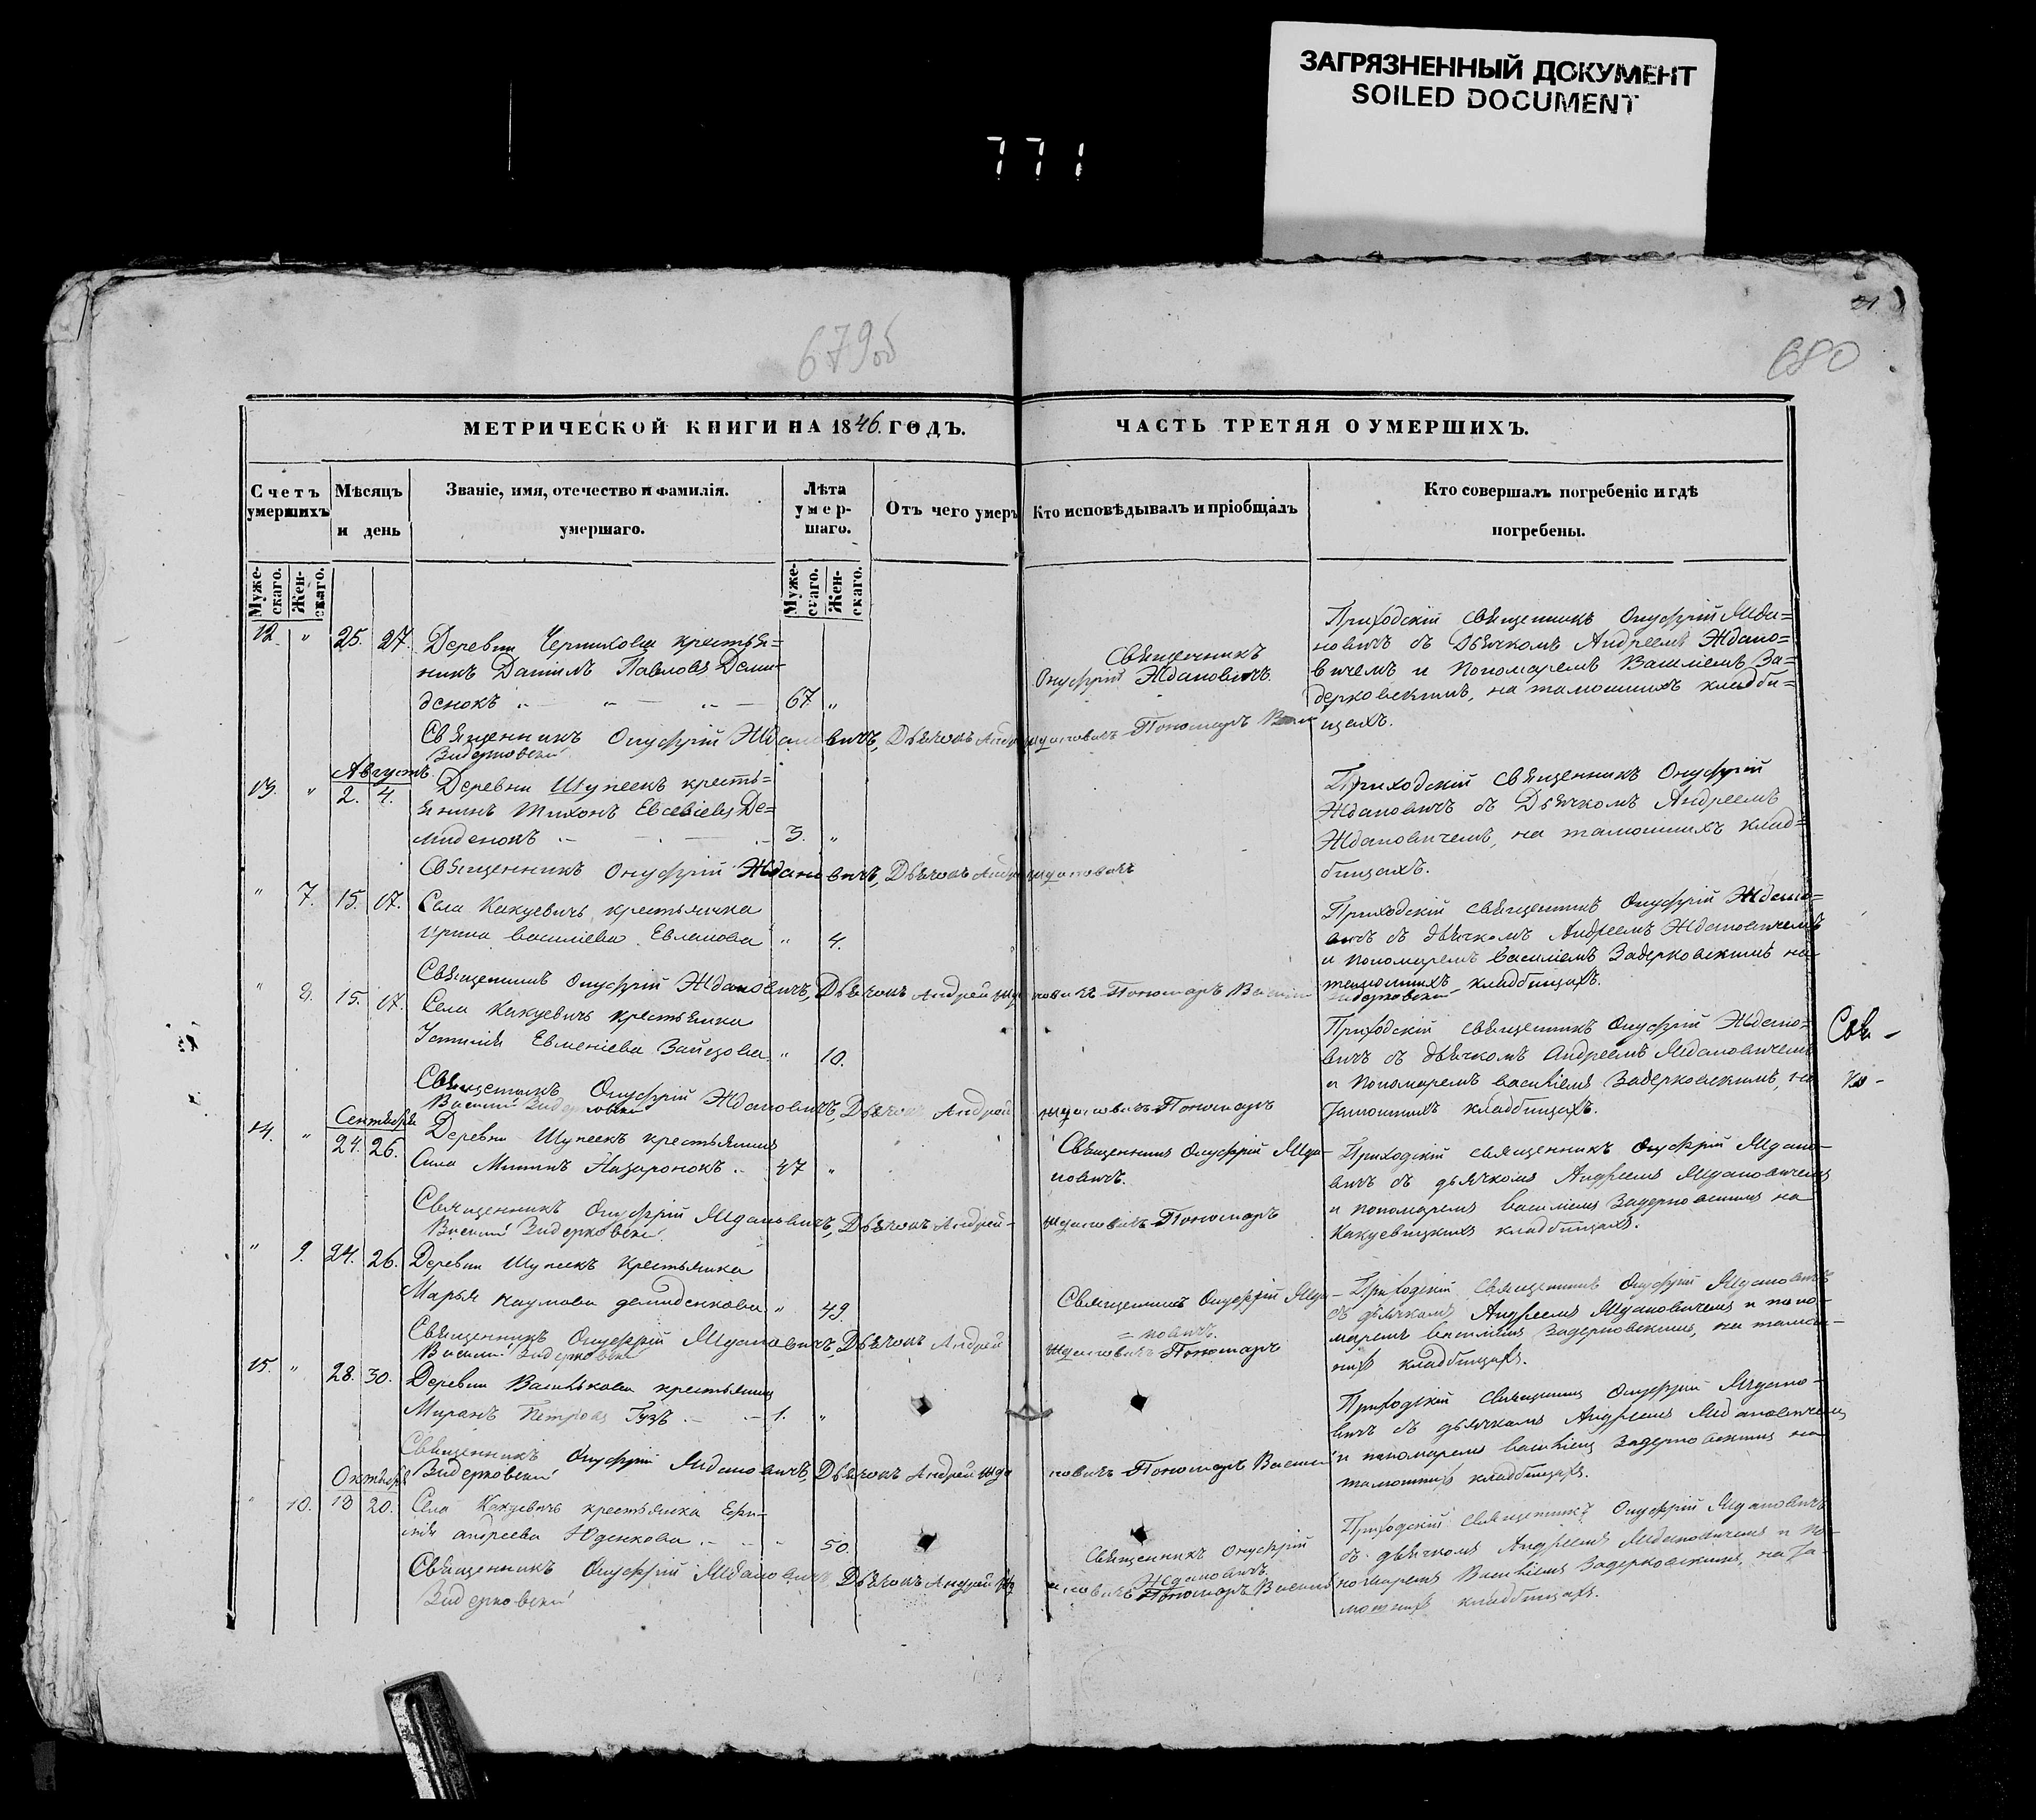 ЗАГРЯЗНЕННЫЙ ДОКУМЕНТ
SOILED DOCUMENT
771
21.
679об
680
МЕТРИЧЕСКОЙ КНИГИ НА 1846. ГОДЪ.
ЧАСТЬ ТРЕТЯЯ О УМЕРШИХЪ.
Счетъ умершихъ
Мѣсяцъ и день
Званіе, имя, отечество и фамилія. умершаго.
Лѣта умер-шаго.
Отъ чего умеръ
Кто исповѣдывалъ и пріобщалъ
Кто совершалъ погребеніе и гдѣ погребены.
Муже-скаго.
Жен-скаго.
Муже-скаго.
Жен-скаго.
12. " 25. 27. Деревни Черникова крестья=
никъ Даніилъ Павловъ Деми-
денокъ 67 "
Священникъ
Онуфрій Ждановичъ.
Приходскій священникъ Онуфрій Жда=
новичъ съ Дьячкомъ Андреемъ Ждано=
вичемъ и Пономаремъ Василіемъ За=
дерковскимъ, на тамошнихъ кладби=
щахъ.
Священникъ Онуфрій Ждановичъ, Дьячокъ Андрей Ждановичъ Пономарь
Задерковскій
Августъ.
13. " 2. 4. Деревни Шупеекъ кресть=
янинъ Тихонъ Евсевіевъ Де=
миденокъ 3. "
Приходскій священникъ Онуфрій
Ждановичъ съ Дьячкомъ Андреемъ
Ждановичемъ, на тамошнихъ клад=
бищахъ.
Священникъ Онуфрій Ждановичъ, Дьячокъ Андрей Ждановичъ
" 7. 15. 17. Села Какуевичъ крестьянка
Ирина Василіева Евланова " 4.
Приходскій священникъ Онуфрій Ждано=
вичъ съ дьячкомъ Андреемъ Ждановичемъ
и пономаремъ Василіемъ Задерковскимъ на
тамошнихъ кладбищахъ.
Священникъ Онуфрій Ждановичъ, Дьячокъ Андрей Ждановичъ Пономарь Василій
Задерковскій
" 8. 15. 17. Села Какуевичъ крестьянка
Евменіева Зайцова " 10.
Приходскій священникъ Онуфрій Ждано=
вичъ съ дьячкомъ Андреемъ Ждановичемъ
и Пономаремъ Василіемъ Задерковскимъ, на
тамошнихъ кладбищахъ.
Священникъ Онуфрій Ждановичъ, Дьячокъ Андрей Ждановичъ Пономарь
Василій Задерковскій
Сентябрь
14. " 24. 26. Деревни Шупеекъ крестьянинъ
Сила Митинъ Назаронокъ 47 "
Священникъ Онуфрій Жда-
новичъ.
Приходскій священникъ Онуфрій Ждано-
вичъ съ дьячкомъ Андреемъ Ждановичемъ
и пономаремъ Василіемъ Задерковскимъ на
Какуевицкихъ кладбищахъ.
Священникъ Онуфрій Ждановичъ, Дьячокъ Андрей Ждановичъ Пономарь
Василій Задерковскій
" 9. 24. 26. Деревни Шупеекъ крестьянка
Марья Наумова Демиденкова " 49.
Священникъ Онуфрій Жда-
=новичъ.
Приходскій священникъ Онуфрій Ждановичъ
съ дьячкомъ Андреемъ Ждановичемъ и поно-
маремъ Василіемъ Задерковскимъ, на тамош-
нихъ кладбищахъ.
Священникъ Онуфрій Ждановичъ, Дьячокъ Андрей Ждановичъ Пономарь
Василій Задерковскій
15. " 28. 30. Деревни Васькова крестьянинъ
Миранъ Петровъ Гузъ 1. "
Приходскій священникъ Онуфрій Ждано-
вичъ съ дьячкомъ Андреемъ Ждановичемъ
и пономаремъ Василіемъ Задерковскимъ на
тамошнихъ кладбищахъ.
Священникъ Онуфрій Ждановичъ, Дьячокъ Андрей Ждановичъ Пономарь Василій
Задерковскій
Октябрь
" 10. 18 20. Села Какуевичъ крестьянка Ефи-
мія Андреева Юденкова 50.
Священникъ Онуфрій
Ждановичъ.
Приходскій священникъ Онуфрій Ждановичъ
съ дьячкомъ Андреемъ Ждановичемъ и по-
номаремъ Василіемъ Задерковскимъ, на та-
мошнихъ кладбищахъ.
Священникъ Онуфрій Ждановичъ Дьячокъ Андрей Ждановичъ Пономарь Василій
Задерковскій